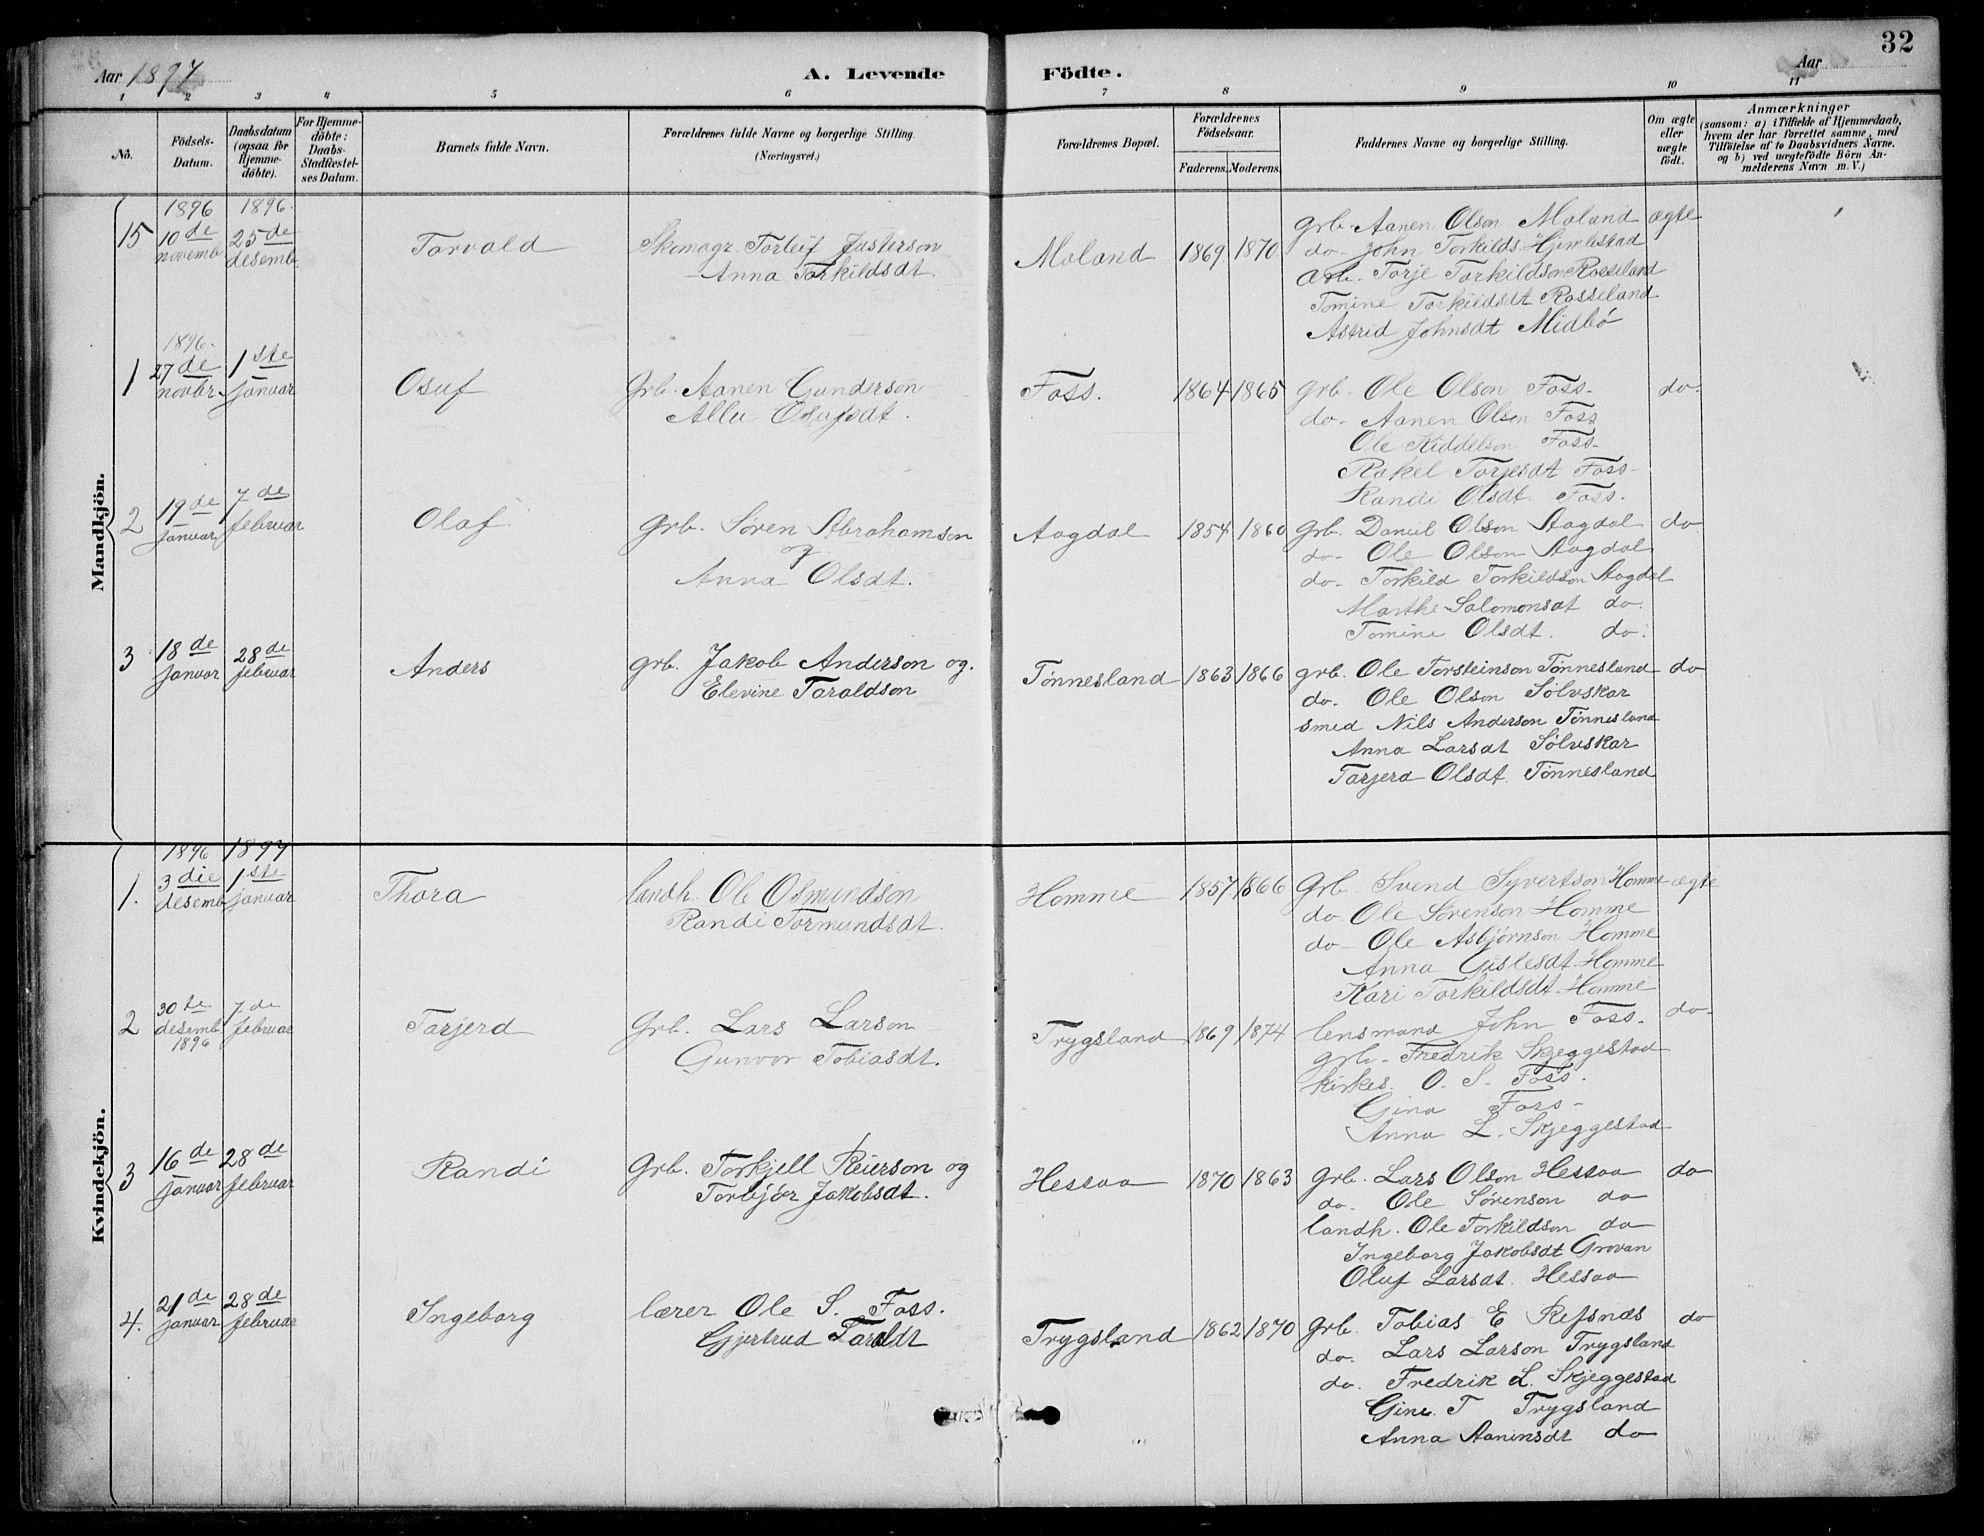 32
Aar 1897
A. Levende Födte.
Aar
1 2 3 4 5 6 7 8 9 10 11
No.
Födsels-Datum.
Daabsdatum (ogsaa for Hjemme-döbte).
For Hjemme-döbte: Daabs-Stadfæstel-ses Datum.
Barnets fulde Navn.
Forældrenes fulde Navne og borgerlige Stilling. (Næringsvei.)
Forældrenes Bopæl.
Forældrenes Födselsaar.
Faderens. Moderens.
Faddernes Navne og borgerlige Stilling.
Om ægte eller uægte født.
Anmærkninger
(saasom: a) i Tilfælde af Hjemmedaab, hvem der har forrettet samme, med Tilföielse af to Daabsvidners Navne. og b) ved uægtefödte Börn An-melderens Navn m. V.)
Mandkjön.
15 1896 10de novemb. 1896. 25de desemb. Torvald
Skomagr. Torleif Justerson
Anna Torkildsdt.
Moland 1869 1870
grb. Aanen Olson Moland ægte
do. John Torkilds. Hjemlestad
Arb. Torje Torkildson Rosseland
Tomine Torkildsdt Rosseland
Astrid Johnsdt Midbö
1 1896. 27de novbr. 1ste januar Osuf
Grb. Aanen Gunderson
Osufsdt.
Foss. 1864 1865
grb. Ole Olson Foss. do.
do. Aanen Olson Foss
Ole Kiddelson Foss.
Rakel Torjesdt Foss
Randi Olsdt. Foss.
2 19de januar 7de februar Olaf
Grb. Sören Abrahamson
Anna Olsdt.
Aagdal 1854 1860
grb. Daniel Olson Aagdal do
do. Ole Olson Aagdal
do. Torkild Torkildson Aagdal
Marthe Salomonsdt do.
Tomine Olsdt. do.
3 18de januar 28de februar Anders
grb. Jakob Anderson og.
Elevine Taraldson
Tönnesland 1863 1866
grb. Ole Torsteinson Tönnesland do
do. Ole Olson Sölvskar
smed Nils Anderson Tönnesland
Anna Larsdt Sölvskar
Tarjerd Olsdt. Tönnesland
Kvindekjön.
1. 1896 3die desemb. 1897 1ste januar Thora
landh. Ole Osmundson
Randi Tormundsdt.
Homme 1857 1866
Grb. Svend Syvertson Homme ægte
do Ole Sörenson Homme
do Ole Asbjörnson Homme
Anna Gislesdt. Homme
Kari Torkildsdt Homme
2 30te desemb. 1896 7de februar Tarjerd
Grb. Lars Larson
Gunvor Tobiasdt.
Trygsland 1869 1874
lensmand John Foss. do.
grb. Fredrik Skjeggestad
kirkes. O. S. Foss.
Gina Foss
Anna L. Skjeggestad
3 16de januar 28de februar Randi
Grb. Torkjell Reierson og
Torbjör Jakobsdt.
Hessaa 1870 1863
Grb. Lars Olson Hessaa do
do. Ole Sörenson do
landh. Ole Torkildson do
Ingeborg Jakobsdt Grovan
Oluf Larsdt. Hessaa
4. 21de januar 28de februar Ingeborg
lærer Ole S. Foss.
Gjertrud Taraldt
Trygsland 1862 1870
Grb. Tobias E Refsnæs do
do. Lars Larson Trygsland
do. Fredrik L. Skjeggestad
Gine. T Trygsland
Anna Aanensdt do